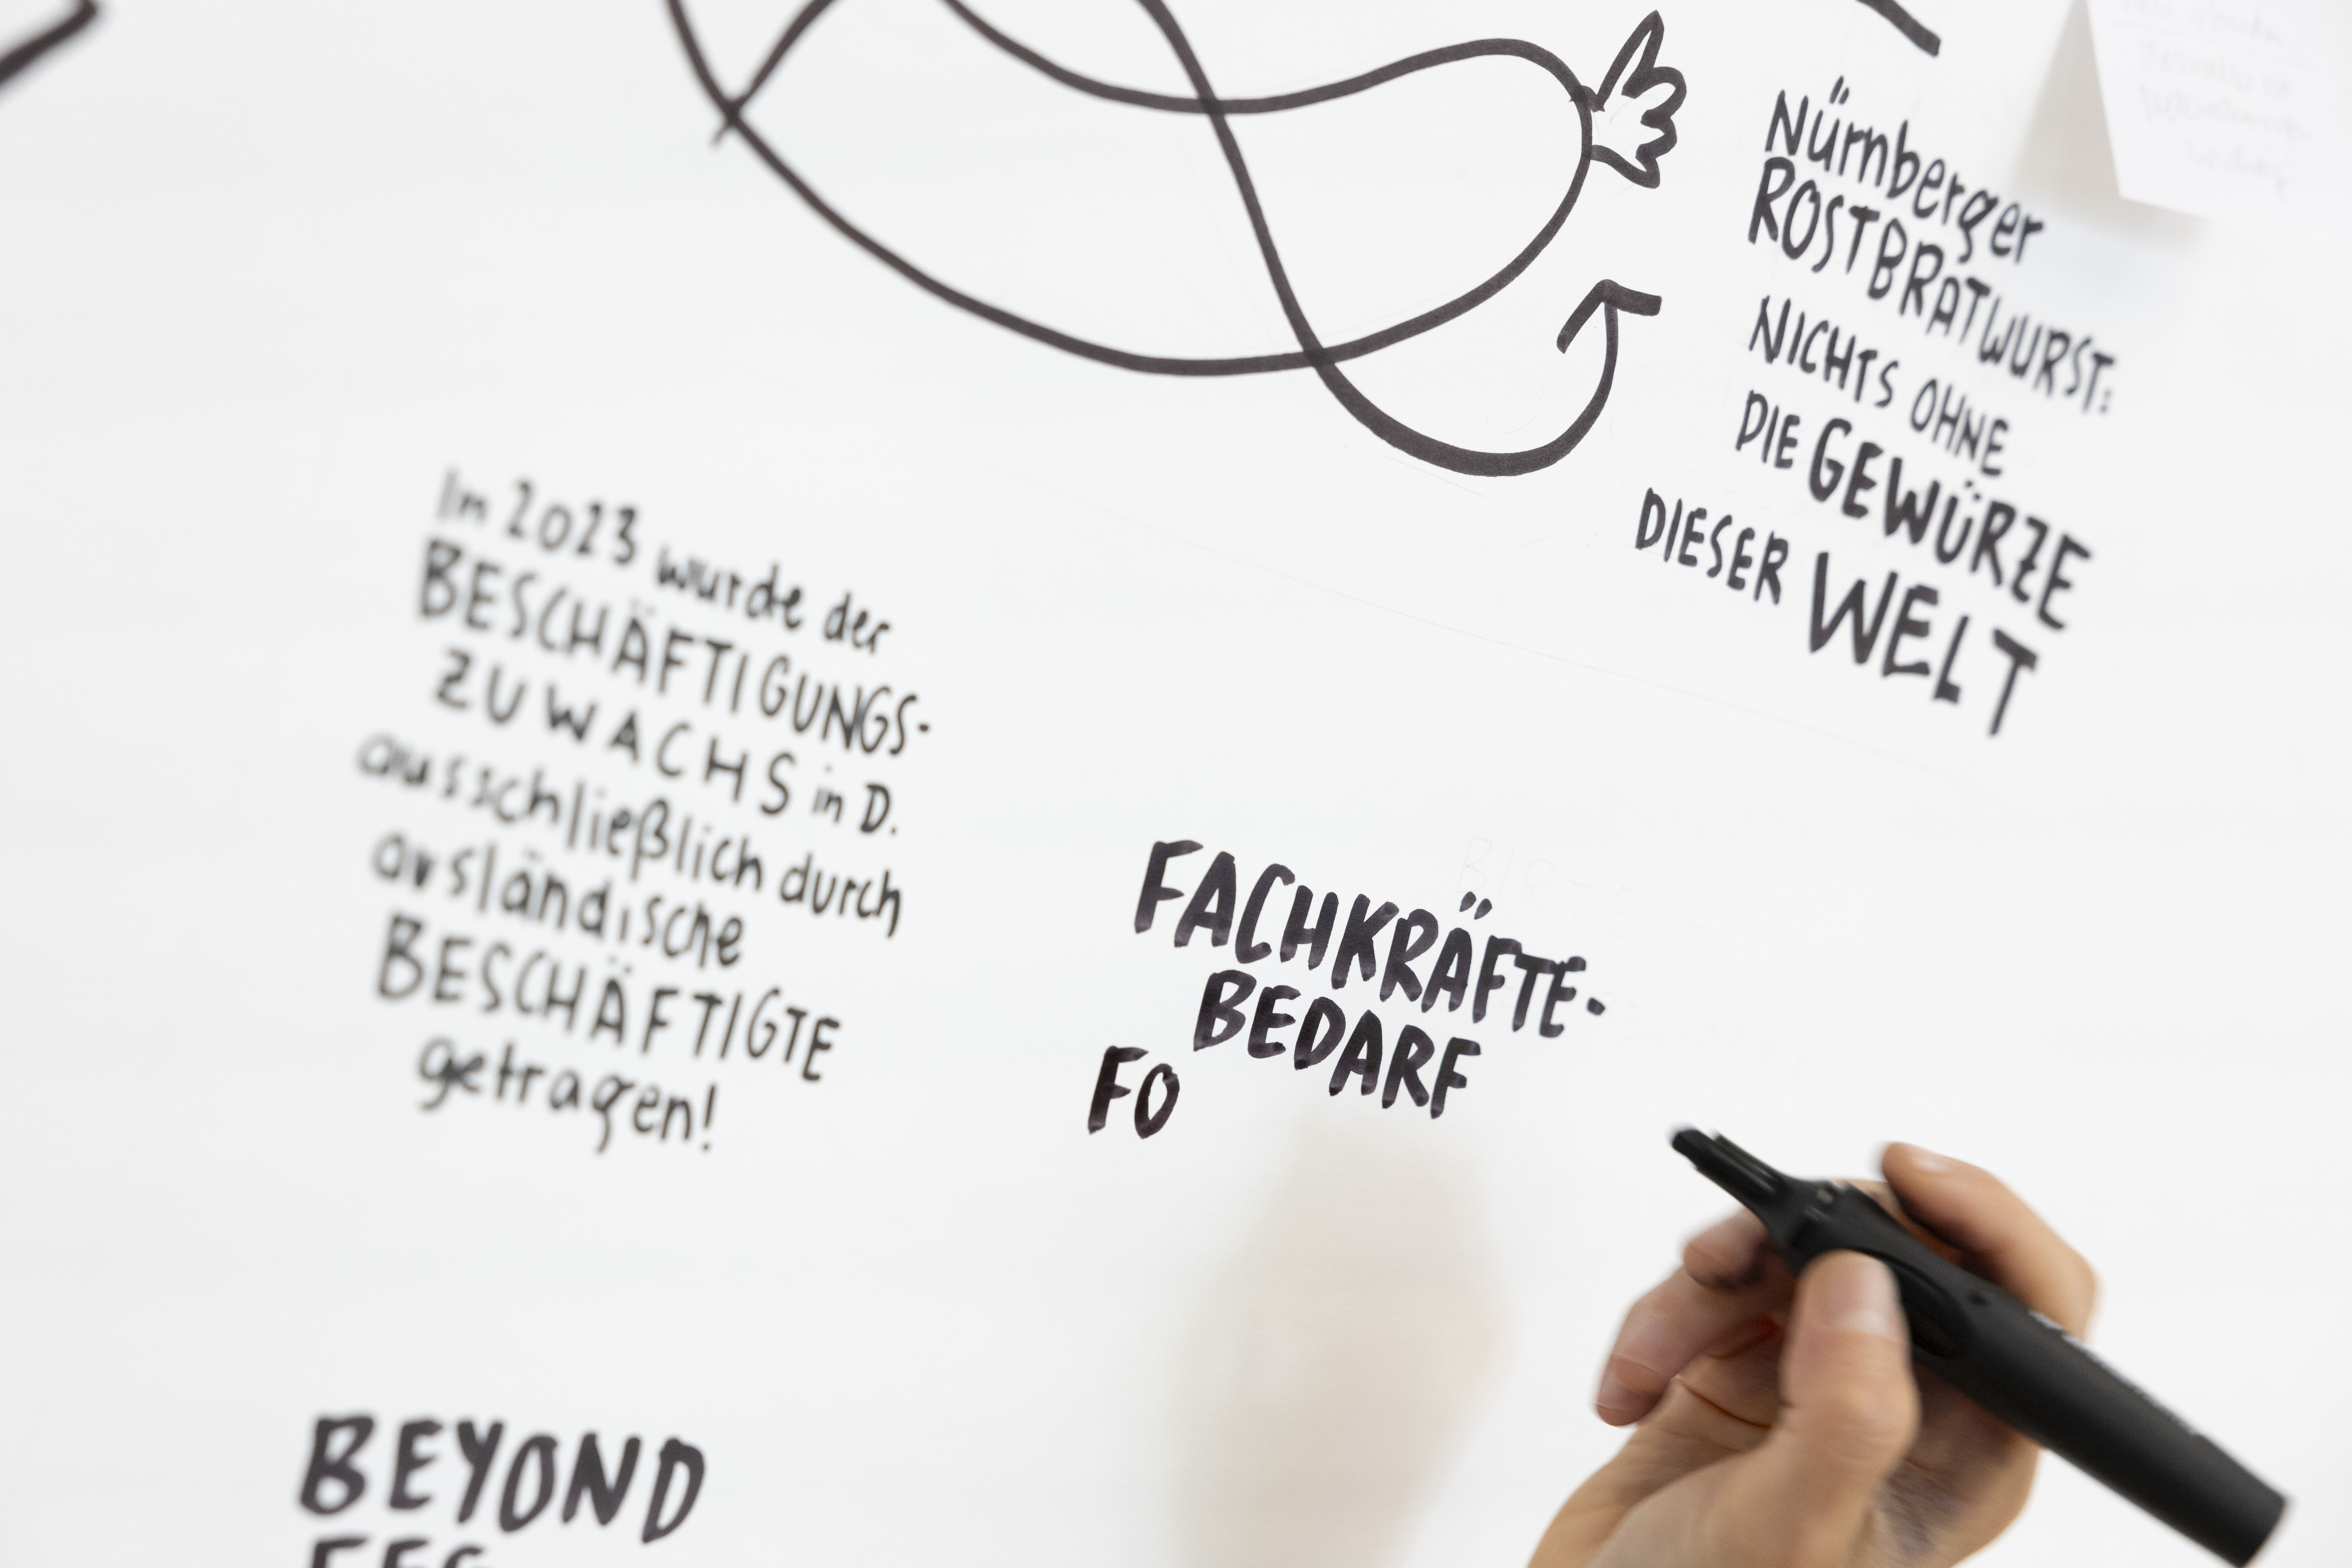 Nürnberger
ROSTBRATWURST:
NICHTS OHNE
DIE GEWÜRZE
DIESER WELT
In 2023 wurde der
BESCHÄFTIGUNGS-
ZUWACHS in D.
ausschließlich durch
ausländische
BESCHÄFTIGTE
getragen!
FACHKRÄFTE-
BEDARF
FO
BEYOND